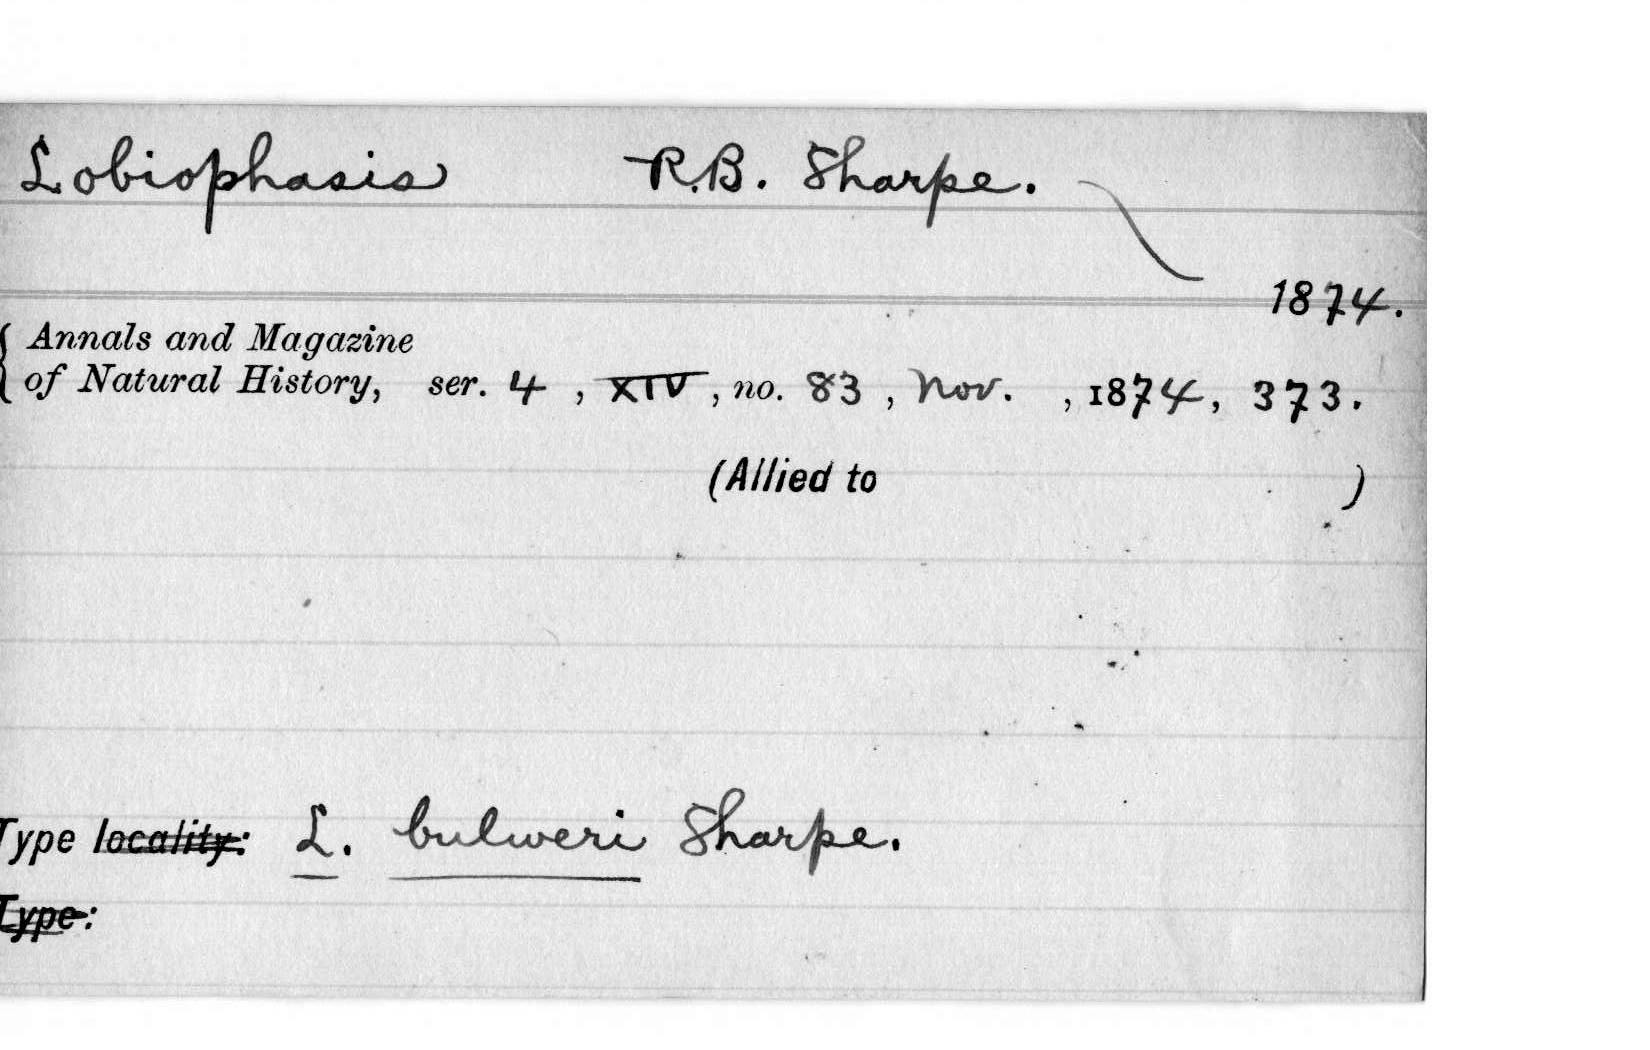 Lobiophasis R.B. Sharpe.
1874.
{ Annals and Magazine
of Natural History, ser. 4, XIV, no. 83, Nov. , 1874, 373.
(Allied to )
Type locality: L. bulweri Sharpe.
Type: